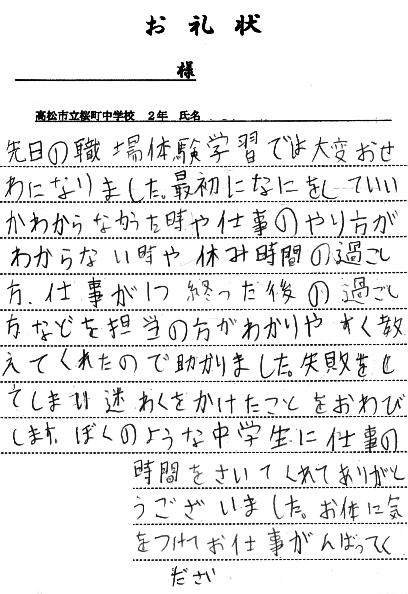 お礼状
様
高松市立桜町中学校 2年 氏名
先日の職場体験学習では大変おせ
わになりました。最初になにをしていい
かわからなかった時や仕事のやり方が
わからない時や休み時間の過ごし
方、仕事が1つ終った後の過ごし
方などを担当の方がわかりやすく教
えてくれたので助かりました。失敗をし
てしまい迷わくをかけたことをおわび
します。ぼくのような中学生に仕事の
時間をさいてくれてありがと
うございました。お体に気
をつけてお仕事がんばってく
ださい